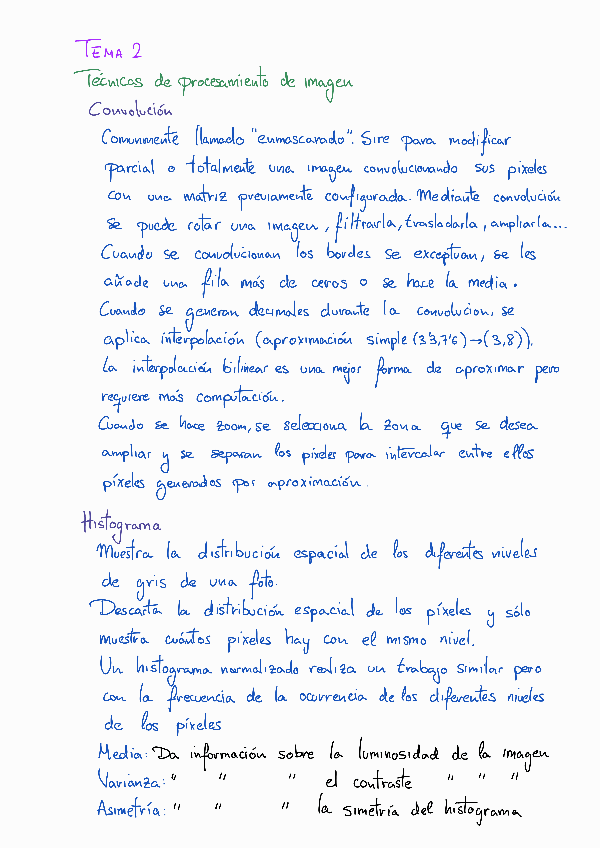 TEMA 2
Técnicas de procesamiento de imagen
Convolución
Comunmente llamado "enmascarado". Sire para modificar
parcial o totalmente una imagen convolucionando sus pixeles
con una matriz previamente configurada. Mediante convolución
se puede rotar una imagen, filtrarla, trasladarla, ampliarla...
Cuando se convolucionan los bordes se exceptuan, se les
añade una fila más de ceros o se hace la media.
Cuando se generan decimales durante la convolucion, se
aplica interpolación (aproximación simple (3'3,7'6)→(3,8)).
La interpolación bilinear es una mejor forma de aproximar pero
requiere más computación.
Cuando se hace zoom, se selecciona la zona que se desea
ampliar y se separan los píxeles para intercalar entre ellos
píxeles generados por aproximación.
Histograma
Muestra la distribución espacial de los diferentes niveles
de gris de una foto.
Descarta la distribución espacial de los píxeles y sólo
muestra cuántos pixeles hay con el mismo nivel.
Un histograma normalizado realiza un trabajo similar pero
con la frecuencia de la ocurrencia de los diferentes niveles
de los píxeles
Media: Da información sobre la luminosidad de la imagen
Varianza: " " " el contraste " " "
Asimetría: " " " la simetría del histograma